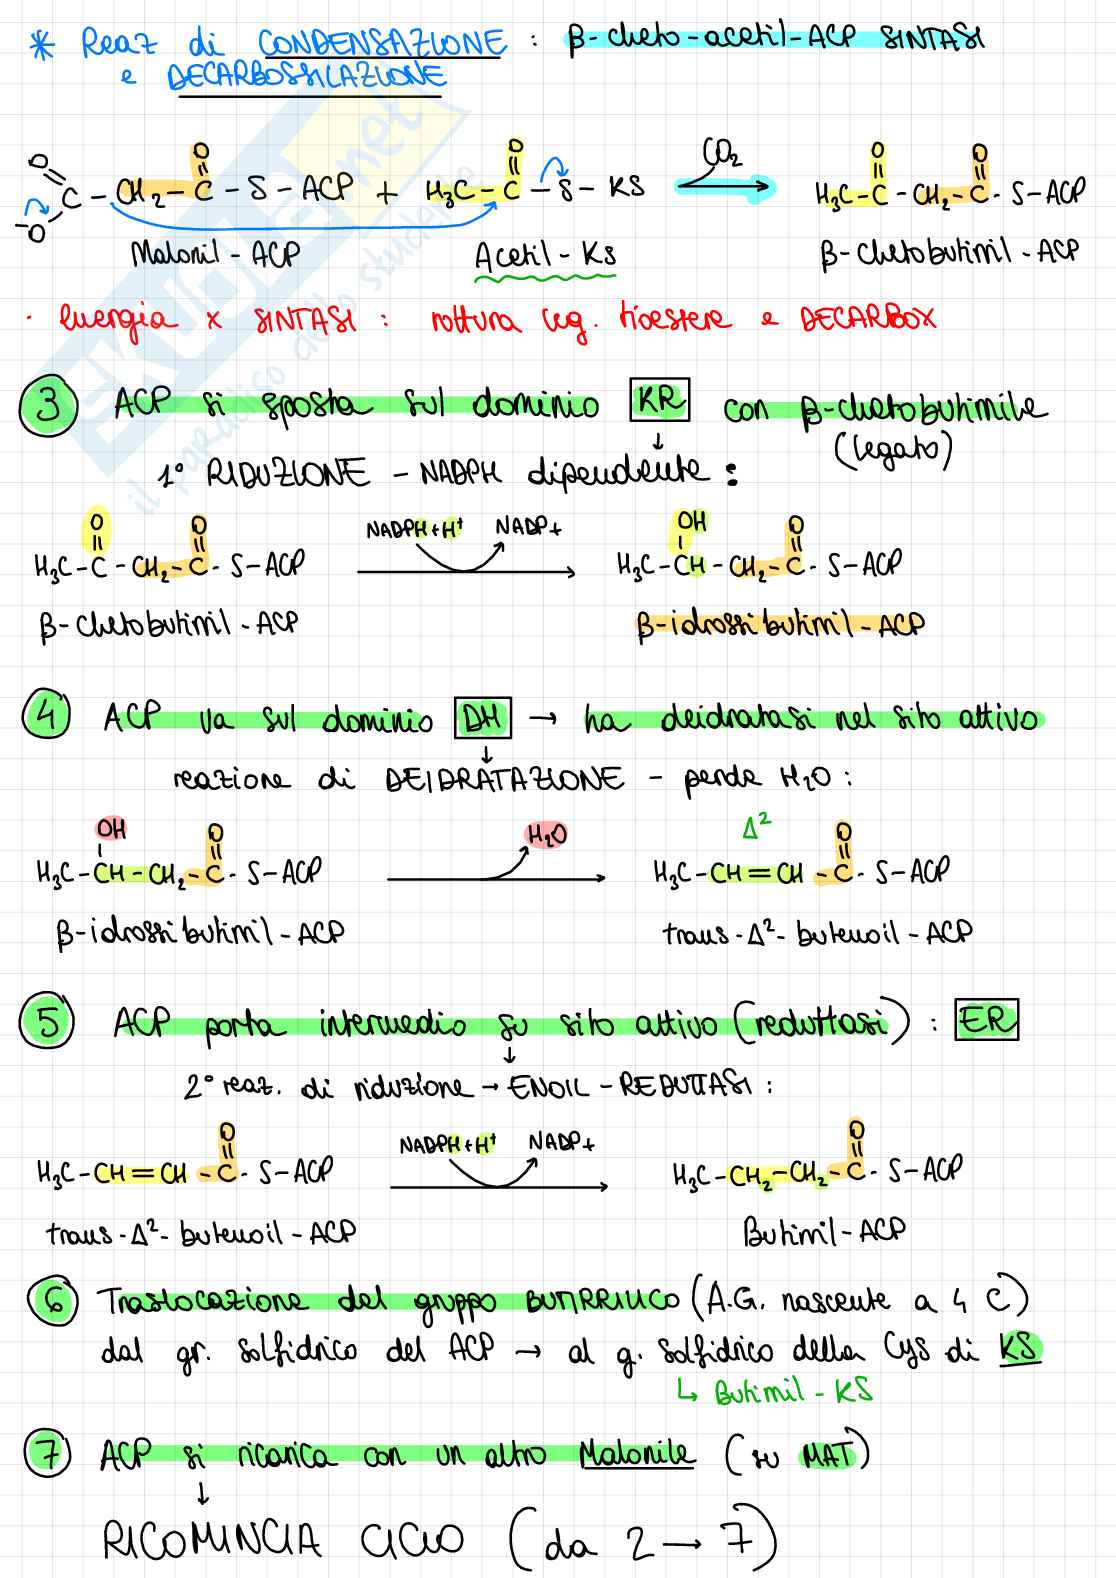 * Reaz di CONDENSAZIONE : β-cheto-acetil-ACP SINTASI
e DECARBOSSILAZIONE
O=C(-O)-CH₂-C(=O)-S-ACP + H₃C-C(=O)-S-KS → CO₂ H₃C-C(=O)-CH₂-C(=O)-S-ACP
Malonil-ACP Acetil-KS β-chetobutirril-ACP
· energia x SINTASI : rottura leg. tioestere e DECARBOX
3 ACP si sposta sul dominio KR con β-chetobutirrile
(legato)
1° RIDUZIONE - NADPH dipendente :
H₃C-C(=O)-CH₂-C(=O)-S-ACP NADPH+H⁺ → NADP+ H₃C-CH(OH)-CH₂-C(=O)-S-ACP
β-chetobutirril-ACP β-idrossibutirril-ACP
4 ACP va sul dominio DH → ha deidratasi nel sito attivo
reazione di DEIDRATAZIONE - perde H₂O :
H₃C-CH(OH)-CH₂-C(=O)-S-ACP → H₂O Δ² H₃C-CH=CH-C(=O)-S-ACP
β-idrossibutirril-ACP trans-Δ²-butenoil-ACP
5 ACP porta intermedio su sito attivo (reduttasi) : ER
2° reaz. di riduzione → ENOIL-REDUTTASI :
H₃C-CH=CH-C(=O)-S-ACP NADPH+H⁺ → NADP+ H₃C-CH₂-CH₂-C(=O)-S-ACP
trans-Δ²-butenoil-ACP Butirril-ACP
6 Traslocazione del gruppo BUTIRRILICO (A.G. nascente a 4 C)
dal gr. solfidrico del ACP → al g. solfidrico della Cys di KS
↳ Butirril-KS
7 ACP si ricarica con un altro Malonile (su MAT)
RICOMINCIA CICLO (da 2 → 7)
SKUOLA.net
il paradiso dello studente